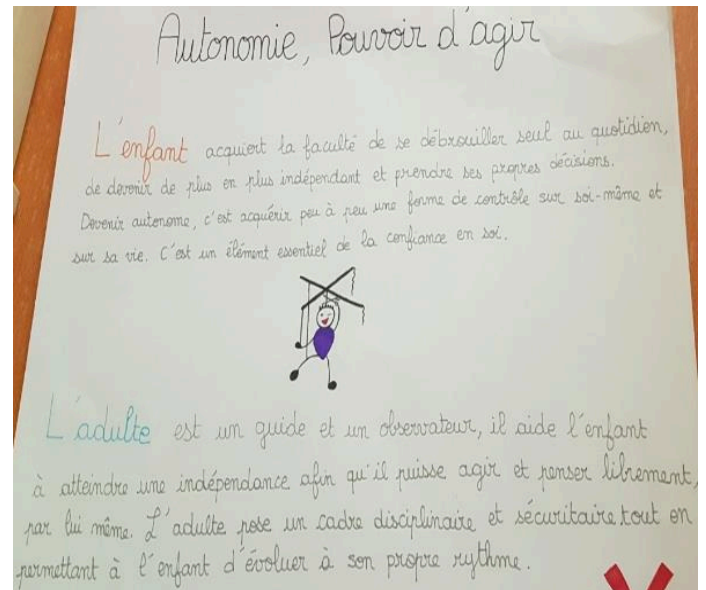 Autonomie, Pouvoir d'agir
L'enfant acquiert la faculté de se débrouiller seul au quotidien,
de devenir de plus en plus indépendant et prendre ses propres décisions.
Devenir autonome, c'est acquérir peu à peu une forme de contrôle sur soi-même et
sur sa vie. C'est un élément essentiel de la confiance en soi.
L'adulte est un guide et un observateur, il aide l'enfant
à atteindre une indépendance afin qu'il puisse agir et penser librement,
par lui même. L'adulte pose un cadre disciplinaire et sécuritaire tout en
permettant à l'enfant d'évoluer à son propre rythme.